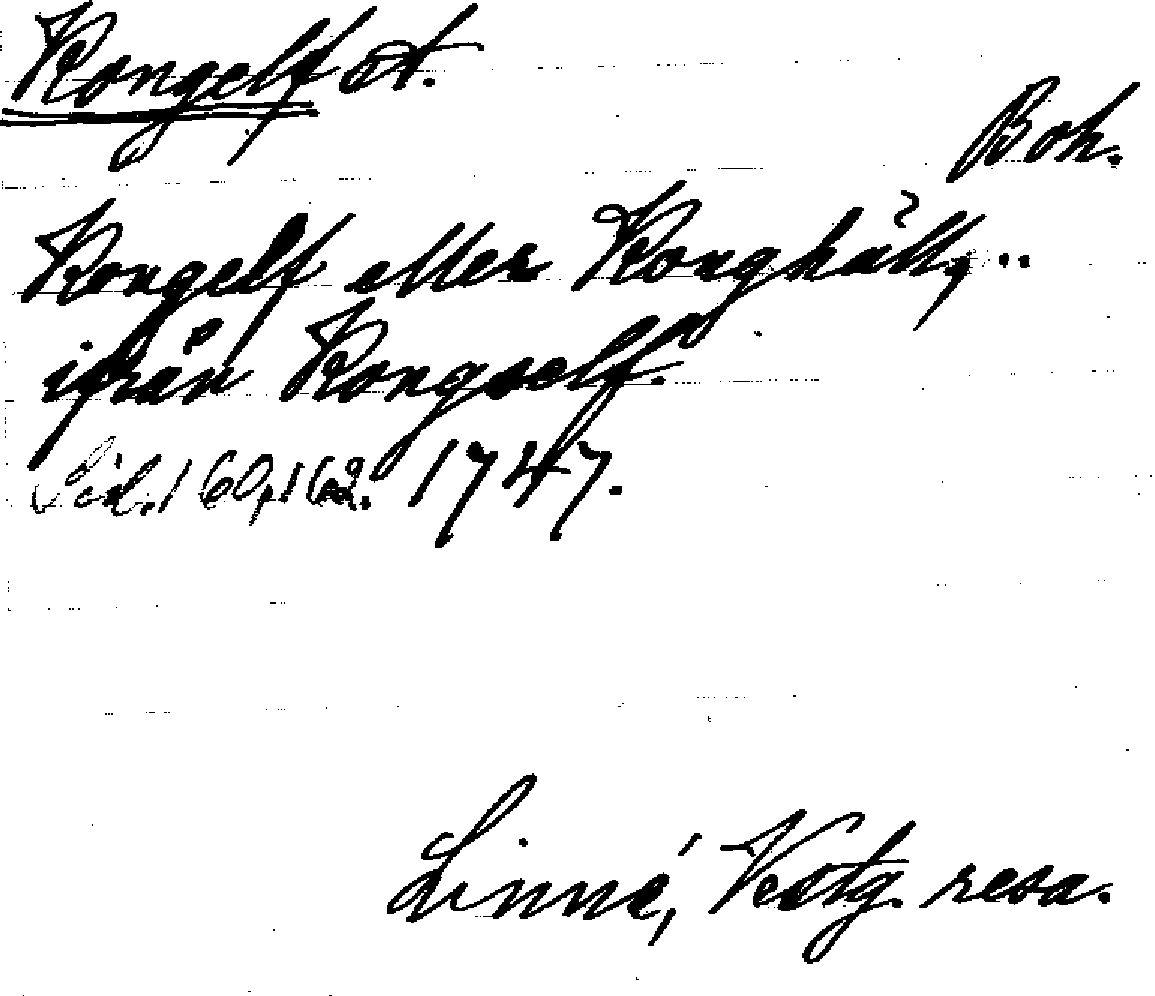 Kongelf st.
Boh.
Kongelf eller Konghäll, ..
ifrån Kongself.
Sid. 160, 162. 1747.
Linné, Vestg. resa.